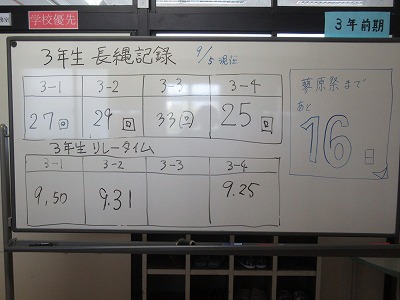 学校優先
3年前期
3年生 長縄記録 9/5 現在
3-1 3-2 3-3 3-4
27回 29回 33回 25回
3年生 リレータイム
3-1 3-2 3-3 3-4
9,50 9.31 9.25
蓼原祭まで
あと
16
日